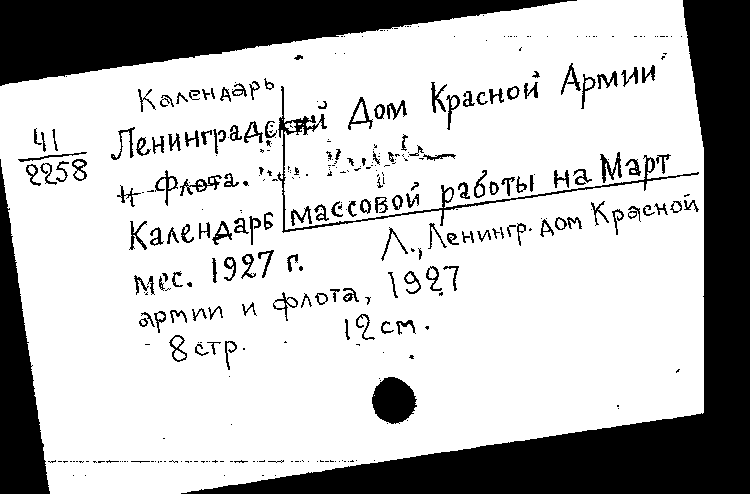 Календарь
41
2258
Ленинградский Дом Красной Армии
и Флота. им. Кирова
Календарь массовой работы на Март
мес. 1927 г. Л., Ленингр. дом Красной
армии и флота, 1927
8 стр. 12 см.